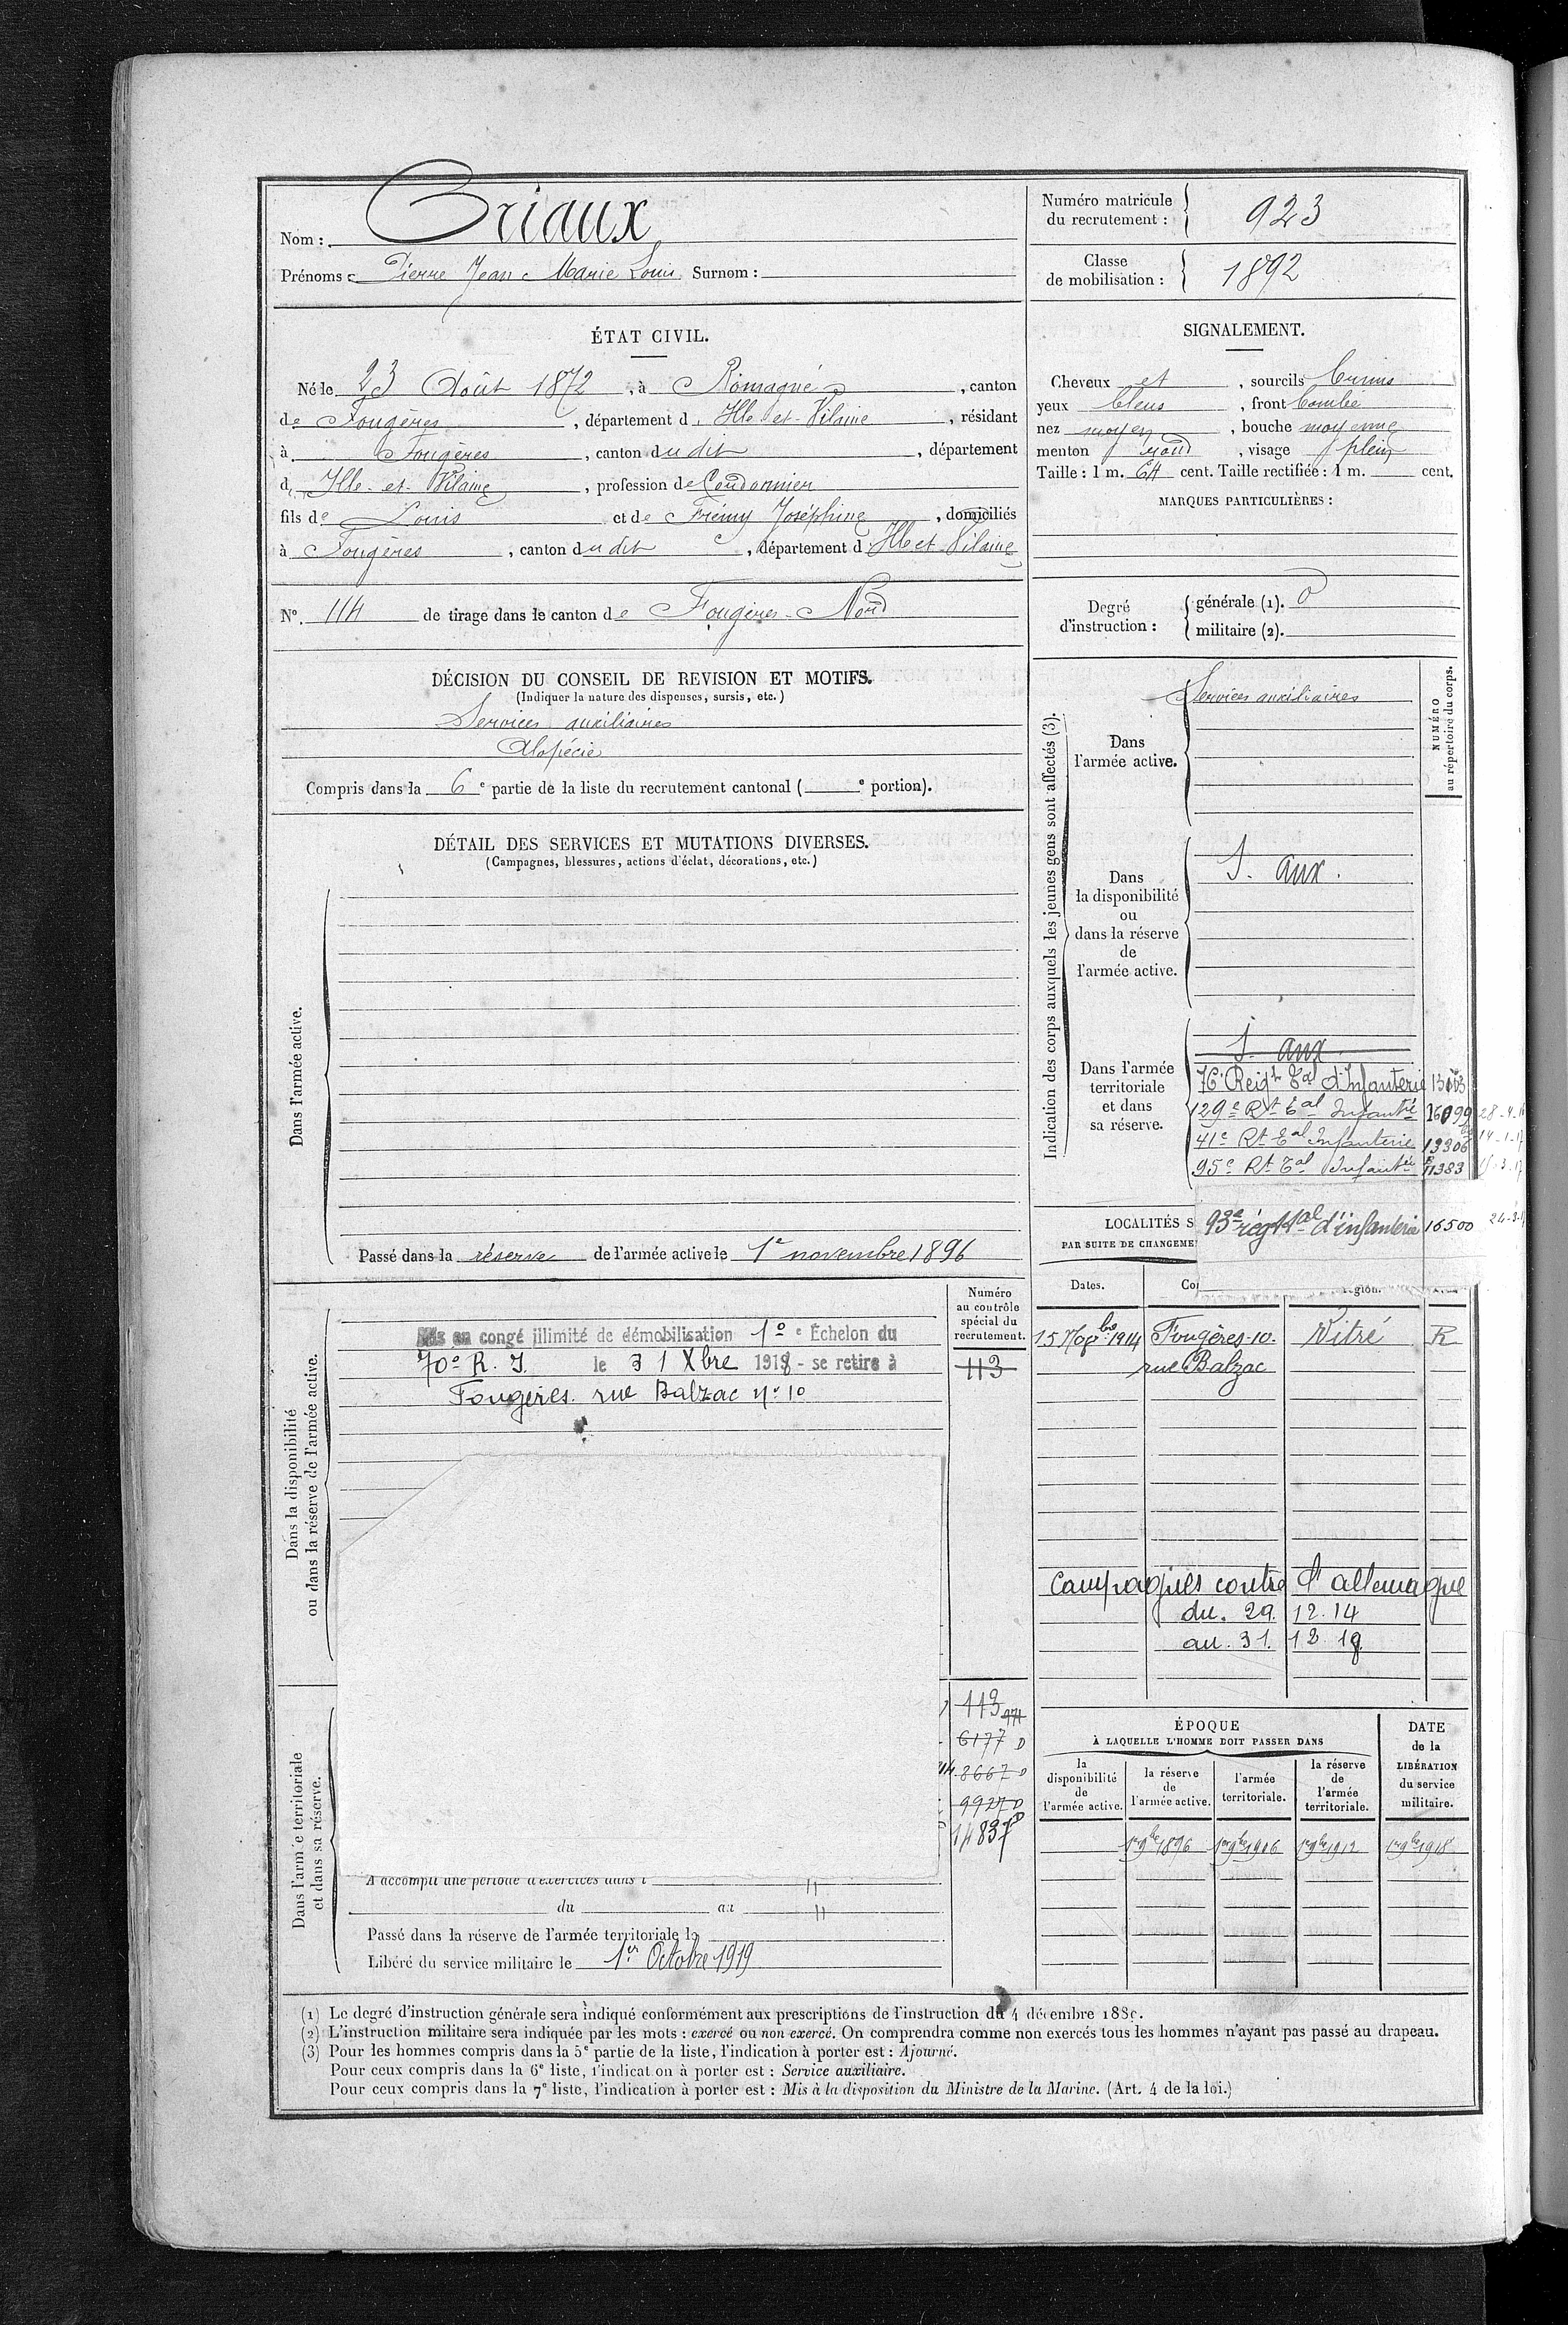 Nom : Oriaux
Prénoms : Pierre Jean Marie Louis Surnom :
Numéro matricule du recrutement : 923
Classe de mobilisation : 1892
ÉTAT CIVIL.
Né le 23 Août 1872, à Romagné, canton
de Fougères, département d Ille et Vilaine, résidant
à Fougères, canton dudit, département
d Ille-et-Vilaine, profession de Cordonnier
fils de Louis et de Frémy Joséphine, domiciliés
à Fougères, canton dudit, département d Ille et Vilaine
N° 114 de tirage dans le canton de Fougères-Nord
SIGNALEMENT.
Cheveux et, sourcils bruns
yeux bleus, front bombé
nez moyen, bouche moyenne
menton rond, visage plein
Taille : 1 m. 64 cent. Taille rectifiée : 1 m. cent.
MARQUES PARTICULIÈRES :
Degré d'instruction :
générale (1). 0
militaire (2).
DÉCISION DU CONSEIL DE REVISION ET MOTIFS.
(Indiquer la nature des dispenses, sursis, etc.)
Services auxiliaires
Alopécie
Compris dans la 6e partie de la liste du recrutement cantonal ( e portion).
DÉTAIL DES SERVICES ET MUTATIONS DIVERSES.
(Campagnes, blessures, actions d'éclat, décorations, etc.)
Dans l'armée active.
Passé dans la réserve de l'armée active le 1e novembre 1896
Indication des corps auxquels les jeunes gens sont affectés (3).
NUMÉRO au répertoire du corps.
Dans l'armée active.
Services auxiliaires
Dans la disponibilité ou dans la réserve de l'armée active.
S. aux.
Dans l'armée territoriale et dans sa réserve.
S. aux
76e Reigt Tal d'Infanterie
129e Rt Tal Infantie
41e Rt Tal Infanterie 13306 14-1-17
95e Rt Tal Infantie 11383
93e régt tal d'infanterie 16500
LOCALITÉS S
PAR SUITE DE CHANGEME
Dates.
15 Nobre 1914 Fougères-10. Vitré R
rue Balzac
Dans la disponibilité
ou dans la réserve de l'armée active.
Numéro au contrôle spécial du recrutement.
Mis en congé illimité de démobilisation 1º e Échelon du
70e R. I. le 31 Xbre 1918 - se retire à
Fougères. rue Balzac nº 10
113
Campagnes contre l'allemagne
du. 29. 12. 14
au. 31. 12 18
113
6177 D
8667 D
9927 D
14837 D
Dans l'armée territoriale
et dans sa réserve.
A accompli une période d'exercices dans l "
du au "
Passé dans la réserve de l'armée territoriale le
Libéré du service militaire le 1er Octobre 1919
ÉPOQUE
À LAQUELLE L'HOMME DOIT PASSER DANS
la disponibilité de l'armée active.
la réserve de l'armée active.
l'armée territoriale.
la réserve de l'armée territoriale.
DATE de la LIBÉRATION du service militaire.
1er 9bre 1896 1er 9bre 1906 1er 9bre 1912 1er 9bre 1918
(1) Le degré d'instruction générale sera indiqué conformément aux prescriptions de l'instruction du 4 décembre 1889.
(2) L'instruction militaire sera indiquée par les mots : exercé ou non exercé. On comprendra comme non exercés tous les hommes n'ayant pas passé au drapeau.
(3) Pour les hommes compris dans la 5e partie de la liste, l'indication à porter est : Ajourné.
Pour ceux compris dans la 6e liste, l'indication à porter est : Service auxiliaire.
Pour ceux compris dans la 7e liste, l'indication à porter est : Mis à la disposition du Ministre de la Marine. (Art. 4 de la loi.)